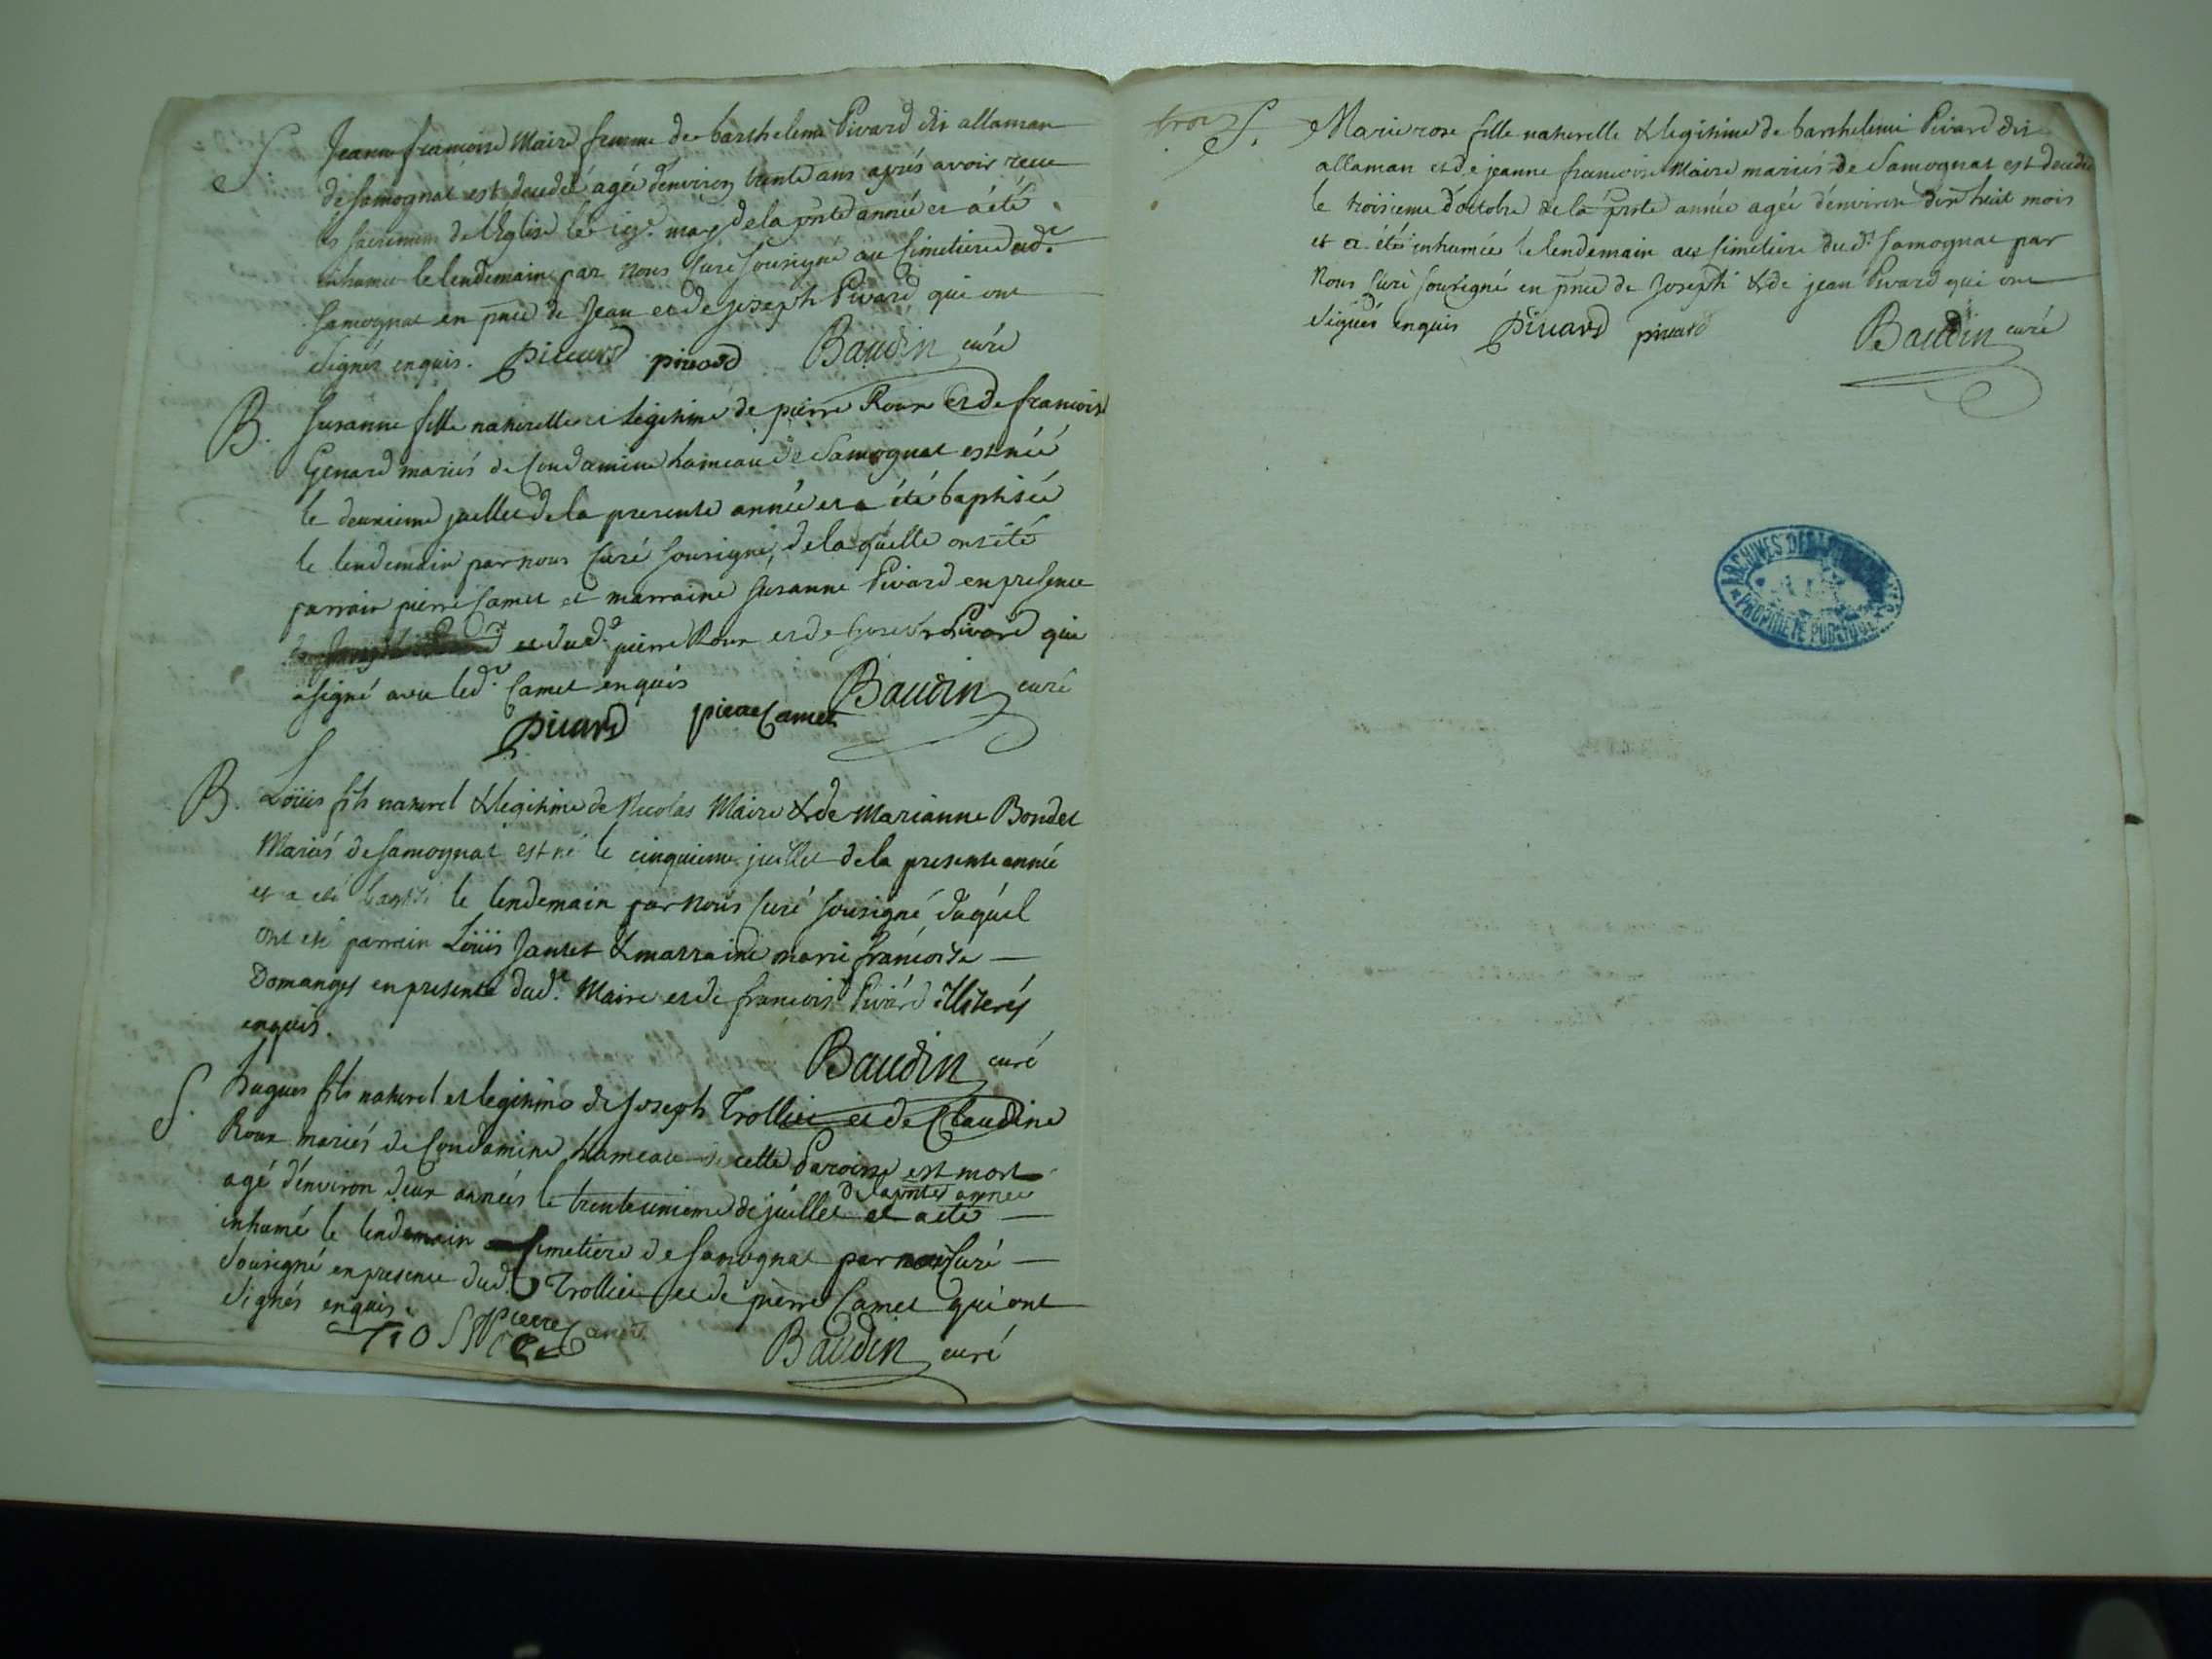 S. Jeanne francoise Maire femme de barthelemi Pivard dit allaman
de Samognat est decedeé agée d'environ trente ans aprés avoir recu
les sacremens de l'Eglise le may de la pnte année et a été
inhumée le lendemain par nous Curé Sousigné au Simetiere dud.
Samognat en pnce de Jean et de joseph Pivard qui ont
signés enquis. pivard pivard Baudin curé
B. Susanne fille naturelle et legitime de pierre Roux et de francoise
Genard mariés de Condamine hameau de Samognat est née
le deuxieme juillet de la presente année et a été baptisée
le lendemain par nous Curé sousigné, de laquelle ont été
parrain pierre Camet et marraine Susanne Pivard en presence
et dud. pierre Roux et de Pivard qui
a signé avec led. Camet enquis Baudin curé
pivard pierre Camet
B. Loüis fils naturel & legitime de Nicolas Maire & de Marianne Bondet
Mariés de Samognat est né le cinquieme juillet de la presente année
et a été baptisé le lendemain par nous Curé sousigné, duquel
ont été parrain Loüis Jantet & marraine marie francoise
Domanges en presence dud. Maire et de francois Pivard illiterés
enquis.
Baudin curé
S. hugues fils naturel et legitime de Joseph Trollier et de Claudine
Roux mariés de Condamine hameau de cette Paroisse est mort
agé d'environ deux années le trentunieme de juillet de la pnte année et a été
inhumé le lendemain Simetiere de Samognat par nous Curé
sousigné en presence dud. Trollier et de pierre Camet qui ont
signés enquis.
pierre Camet
Baudin curé
S. Marie rose fille naturelle & legitime de barthelemi Pivard dit
allaman et de jeanne francoise Maire mariés de Samognat est decedée
le troisieme d'octobre de la pnte année agée d'environ dix huit mois
et a été inhumée le lendemain au simetiere dud. Samognat par
Nous Curé sousigné en pnce de Joseph & de jean Pivard qui ont
signés enquis pivard pivard Baudin curé
ARCHIVES
PROPRIÉTÉ PUBLIQUE